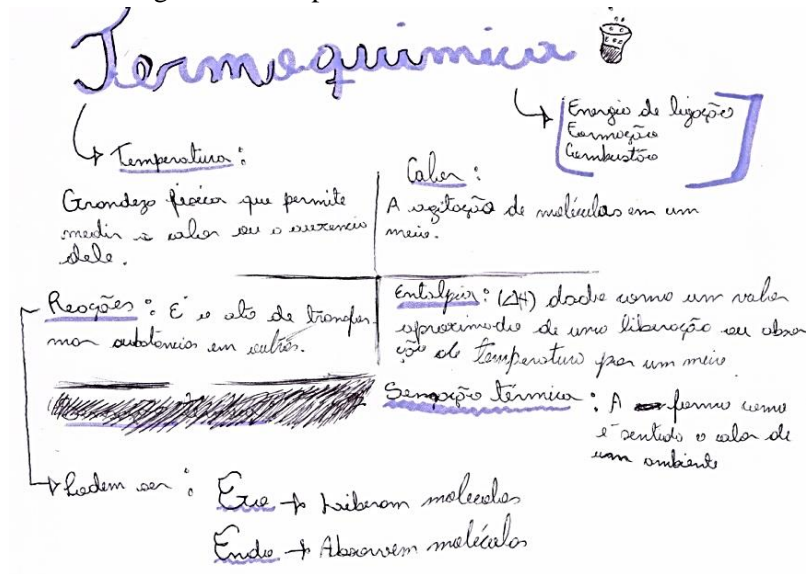 Termoquímica
Energia de ligação
Formação
Combustão
Temperatura:
Grandeza física que permite
medir o calor ou a ausencia
dele.
Calor:
A agitação de moléculas em um
meio.
Reações: É o ato de transfor
mar substâncias em outras.
Entalpia: (ΔH) dado como um valor
aproximado de uma liberação ou absor
ção de temperatura por um meio
Sensação térmica: A forma como
é sentido o calor de
um ambiente
Podem ser:
Exo → Liberam moleculas
Endo → Absorvem moléculas